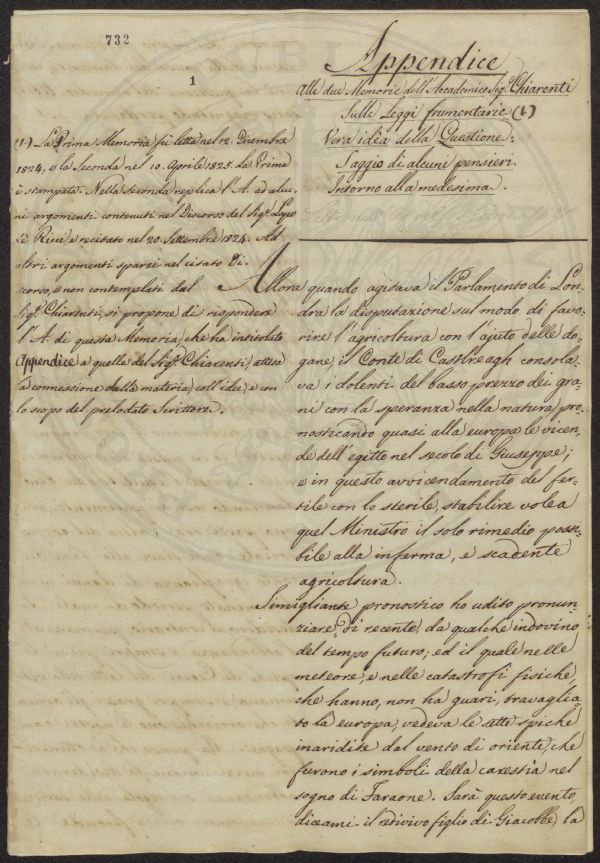 732
1
Appendice
Alle due Memorie dell'Accademico Sig.r Chiarenti
Sulle Leggi frumentarie (1.)
Vera idea della Questione.
Saggio di alcuni pensieri
Intorno alla medesima.
(1.) La Prima Memoria fù letta nel 12. Dicembre
1824, e la Seconda nel 10. Aprile 1825. La Prima
è stampata. Nella seconda replica l'A. ad alcu-
ni argomenti contenuti nel Discorso del Sig.r Lapo
de Ricci, e recitato nel 20. Settembre 1824. Ad
altri argomenti sparsi nel citato Di-
scorso, e non contemplati dal
Sig.r Chiarenti, si propone di rispondere
l'A. di questa Memoria, che ha intitolato
Appendice a quelle del Sig.r Chiarenti, attesa
la connessione della materia, coll'idee, e con
lo scopo del prelodato Scrittore.
Allora quando agitava il Parlamento di Lon-
dra la disputazione sul modo di favo-
rire l'agricoltura con l'ajuto delle do-
gane, il Conte di Castlreagh consola-
va i dolenti del basso prezzo dei gra-
ni con la speranza nella natura, pro-
nosticando quasi alla europa le vicen-
de dell'egitto nel secolo di Giuseppe;
e in questo avvicendamento del fer-
tile con lo sterile, stabilire volea
quel Ministro il solo rimedio possi-
bile alla inferma, e scadente
agricoltura.
Simigliante pronostico ho udito pronun-
ziare, di recente, da qualche indovino
del tempo futuro; ed il quale nelle
meteore, e nelle catastrofi fisiche,
che hanno, non ha guari, travaglia-
to la europa, vedeva le sette spiche
inaridite dal vento di oriente, che
furono i simboli della carestia nel
sogno di Faraone. Sarà questo evento,
diceami il redivivo figlio di Giacobbe, la